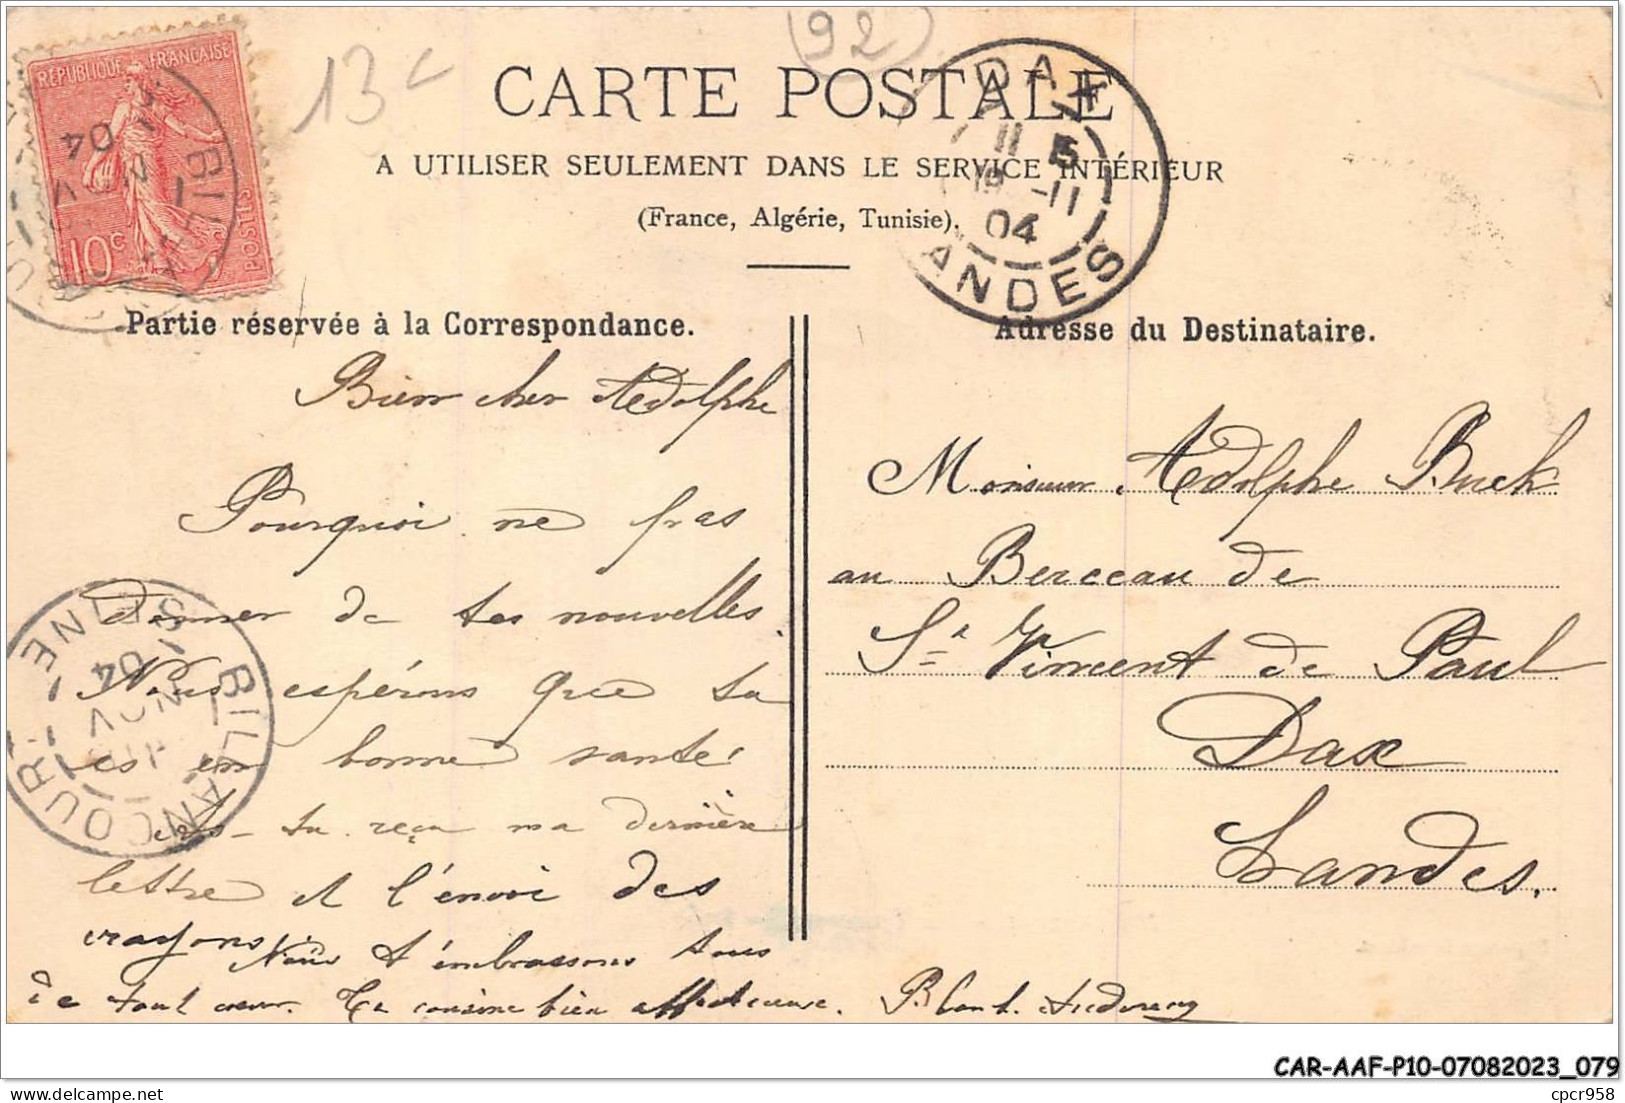 RÉPUBLIQUE FRANÇAISE
10c
POSTES
13 c
92
CARTE POSTALE
A UTILISER SEULEMENT DANS LE SERVICE INTÉRIEUR
(France, Algérie, Tunisie).
DAX
11 15
-11
04
LANDES
Partie réservée à la Correspondance.
Bien cher Adolphe
Pourquoi ne pas
donner de tes nouvelles.
Nous espérons que tu
es en bonne santé
tu reçu ma dernière
lettre et l'envoi des
crayons Nous t'embrassons tous
de tout cœur. Ta cousine bien affectueuse.
BILLANCOURT
SEINE
NOV
04
Adresse du Destinataire.
Monsieur Adolphe Buck
au Berceau de
St Vincent de Paul
Dax
Landes.
CAR-AAF-P10-07082023_079
cpcr958